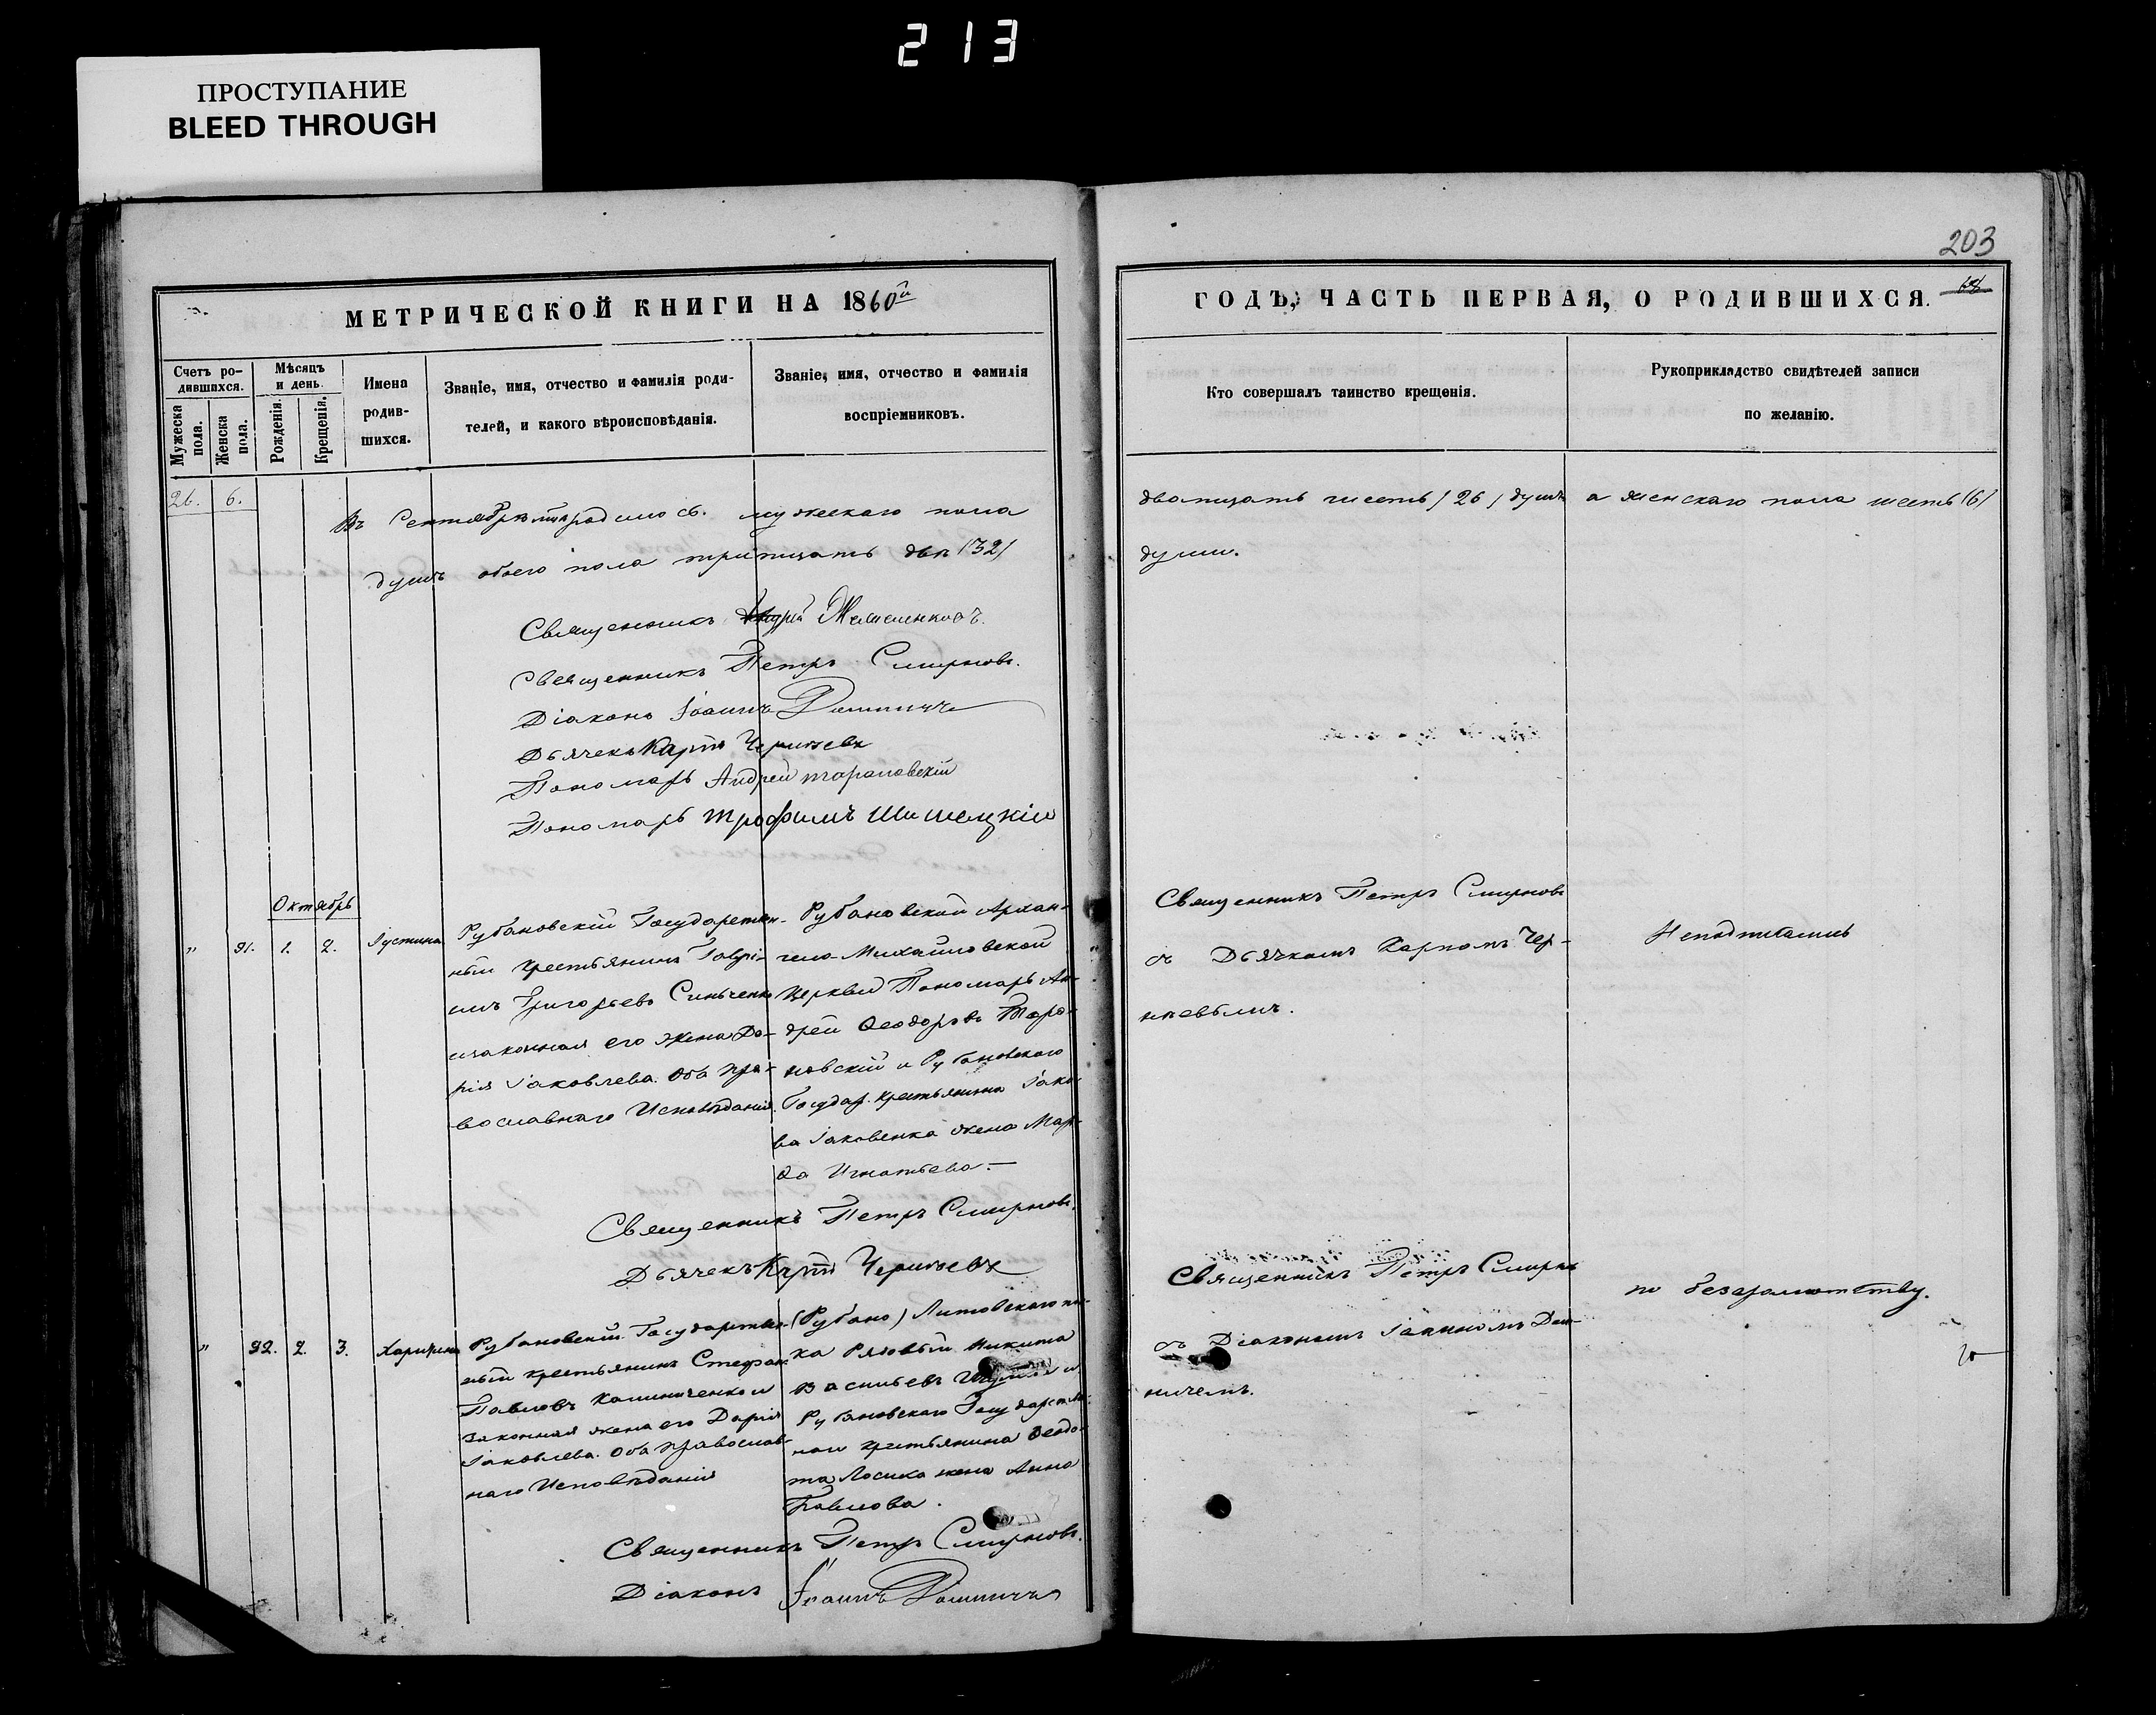 213
ПРОСТУПАНИЕ
BLEED THROUGH
203
МЕТРИЧЕСКОЙ КНИГИ НА 1860й
ГОДЪ, ЧАСТЬ ПЕРВАЯ, О РОДИВШИХСЯ.
Счетъ ро-
дившихся.
Мужеска пола.
Женска пола.
Мѣсяцъ
и день.
Рожденія.
Крещенія.
Имена
родив-
шихся.
Званіе, имя, отчество и фамилія роди-
телей, и какого вѣроисповѣданія.
Званіе, имя, отчество и фамилія
воспріемниковъ.
Кто совершалъ таинство крещенія.
Рукоприкладство свидѣтелей записи
по желанію.
26. 6.
Въ Сентябрѣ родилось. мужескаго пола
дватцать шесть /26/ душъ а женскаго пола шесть /6/
душъ обоего пола тритцать двѣ /32/
души.
Священникъ Андрей
Священникъ Петръ Смирновъ.
Діаконъ Іоаннъ
Дьячекъ Карпъ Черняевъ
Пономарь Андрей Тарановскій
Пономарь Трофимъ Шишацкій
Октябрь
" 91. 1. 2. Іустина
Рубановскій Государствен-
ный Крестьянинъ Гаврі-
илъ Григорьевъ Синьченко
и законная его жена Да-
рія Іаковлева. Оба пра-
вославнаго Исповѣданія.
Рубановской Архан-
гело-Михайловской
Церкви Пономарь Ан-
дрей Ѳеодоровъ Тара-
новскій и Рубановскаго
Государ. крестьянина Іако-
ва Іаковенка жена Мар-
ѳа Игнатьева.—
Священникъ Петръ Смирновъ
съ Дьячкомъ Карпомъ Чер-
няевымъ.
Неподписались
Священникъ Петръ Смирновъ.
Дьячекъ Карпъ Черняевъ
" 92. 2. 3. Харитина
Рубановскій Государствен-
ный крестьянинъ Стефан
Павловъ Калиниченко и
законная жена его Дарія
Іаковлева. Оба православ-
наго Исповѣданія
(Рубано) Литовскаго пол-
ка Рядовый Никита
Васильевъ и
Рубановскаго Государствен-
наго крестьянина Ѳеодо-
та Лосика жена Анна
Павлова.
Священникъ Петръ Смирн
съ Діакономъ Іоанномъ Дам-
ничемъ.
по безграмотству.
Священникъ Петръ Смирновъ.
Діаконъ Іоаннъ